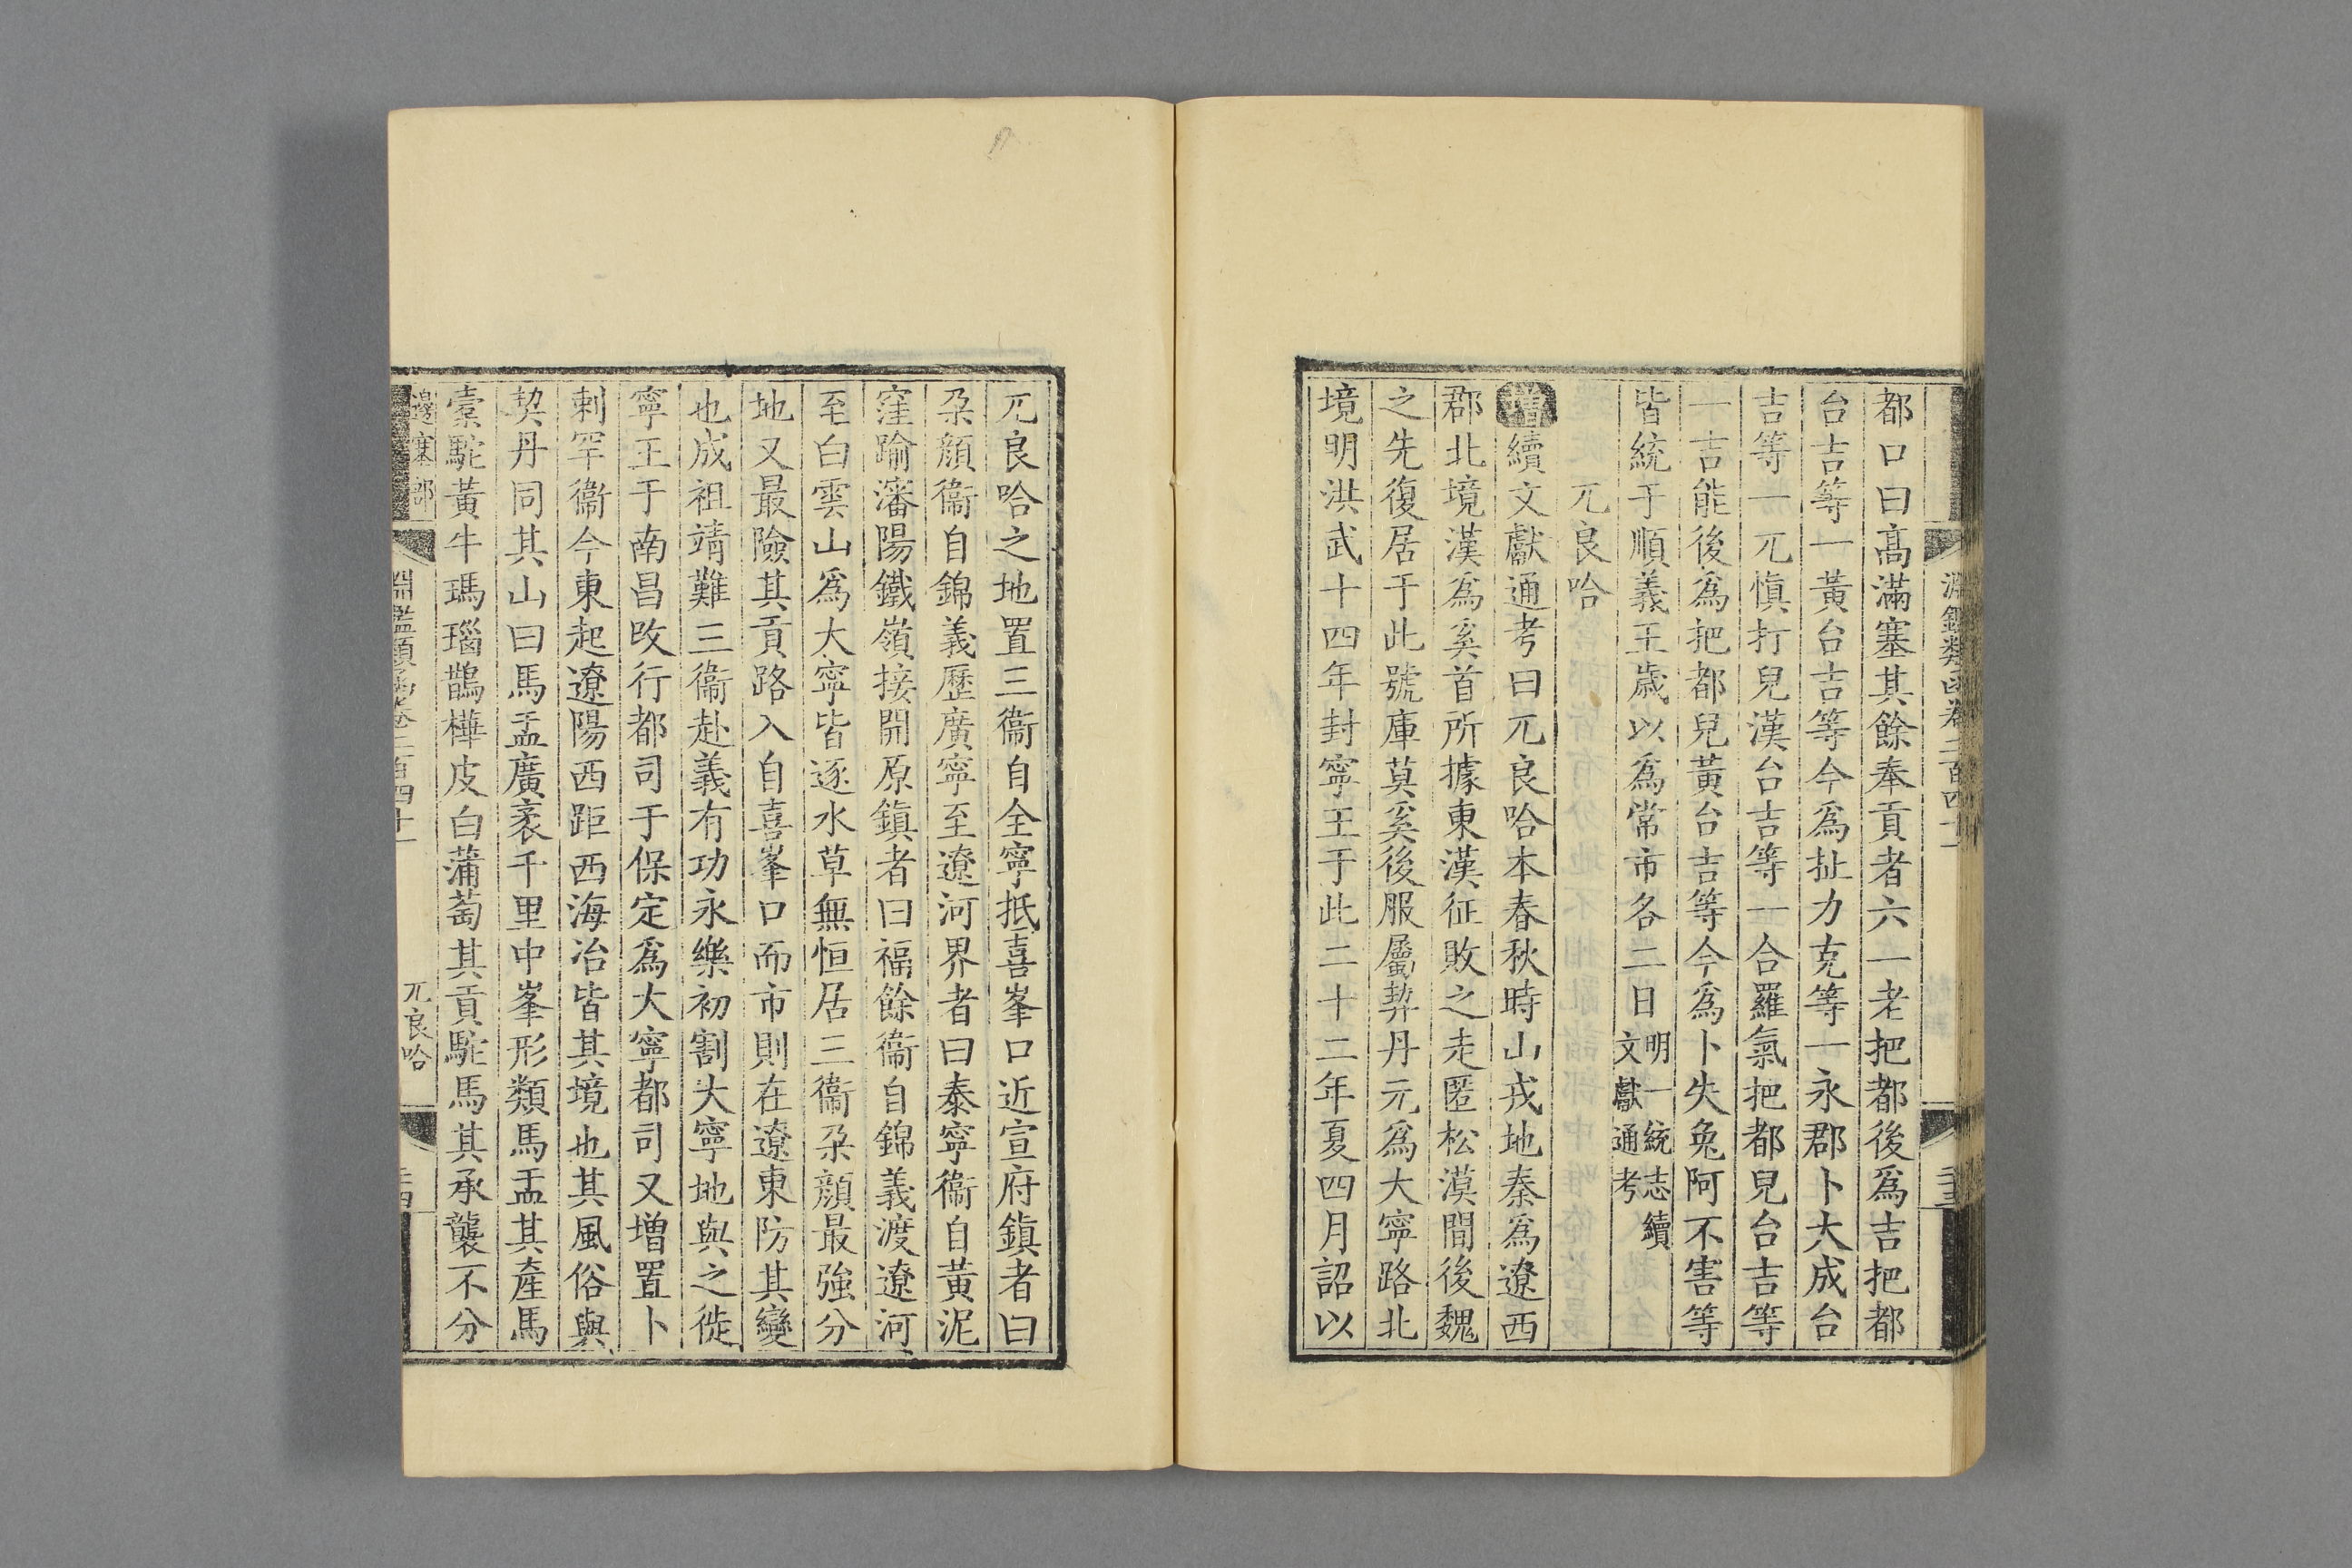 淵鑑類函卷二百四十一
都口曰高滿塞其餘奉貢者六一老把都後爲吉把都
台吉等一黃台吉等今爲扯力克等一永郡卜大成台
吉等一兀愼打兒漢台吉等一合羅氣把都兒台吉等
一吉能後爲把都兒黃台吉等今爲卜失兔阿不害等
皆統于順義王歲以爲常市各二日
明一統志續
文獻通考
兀良哈
增續文獻通考曰兀良哈本春秋時山戎地秦爲遼西
郡北境漢爲奚首所據東漢征敗之走匿松漠間後魏
之先復居于此號庫莫奚後服屬契丹元爲大寧路北
境明洪武十四年封寧王于此二十二年夏四月詔以
兀良哈之地置三衞自全寧抵喜峯口近宣府鎭者曰
朶顏衞自錦義歷廣寧至遼河界者曰泰寧衞自黃泥
窪踰瀋陽鐵嶺接開原鎭者曰福餘衞自錦義渡遼河
至白雲山爲大寧皆逐水草無恒居三衞朶顏最強分
地又最險其貢路入自喜峯口而市則在遼東防其變
也成祖靖難三衞赴義有功永樂初割大寧地與之徙
寧王于南昌改行都司于保定爲大寧都司又增置卜
剌罕衞今東起遼陽西距西海冶皆其境也其風俗與
契丹同其山曰馬盂廣袤千里中峯形類馬盂其產馬
橐駝黃牛瑪瑙鵲樺皮白蒲萄其貢駝馬其承襲不分
邊塞部
淵鑑類函卷二百四十一
兀良哈